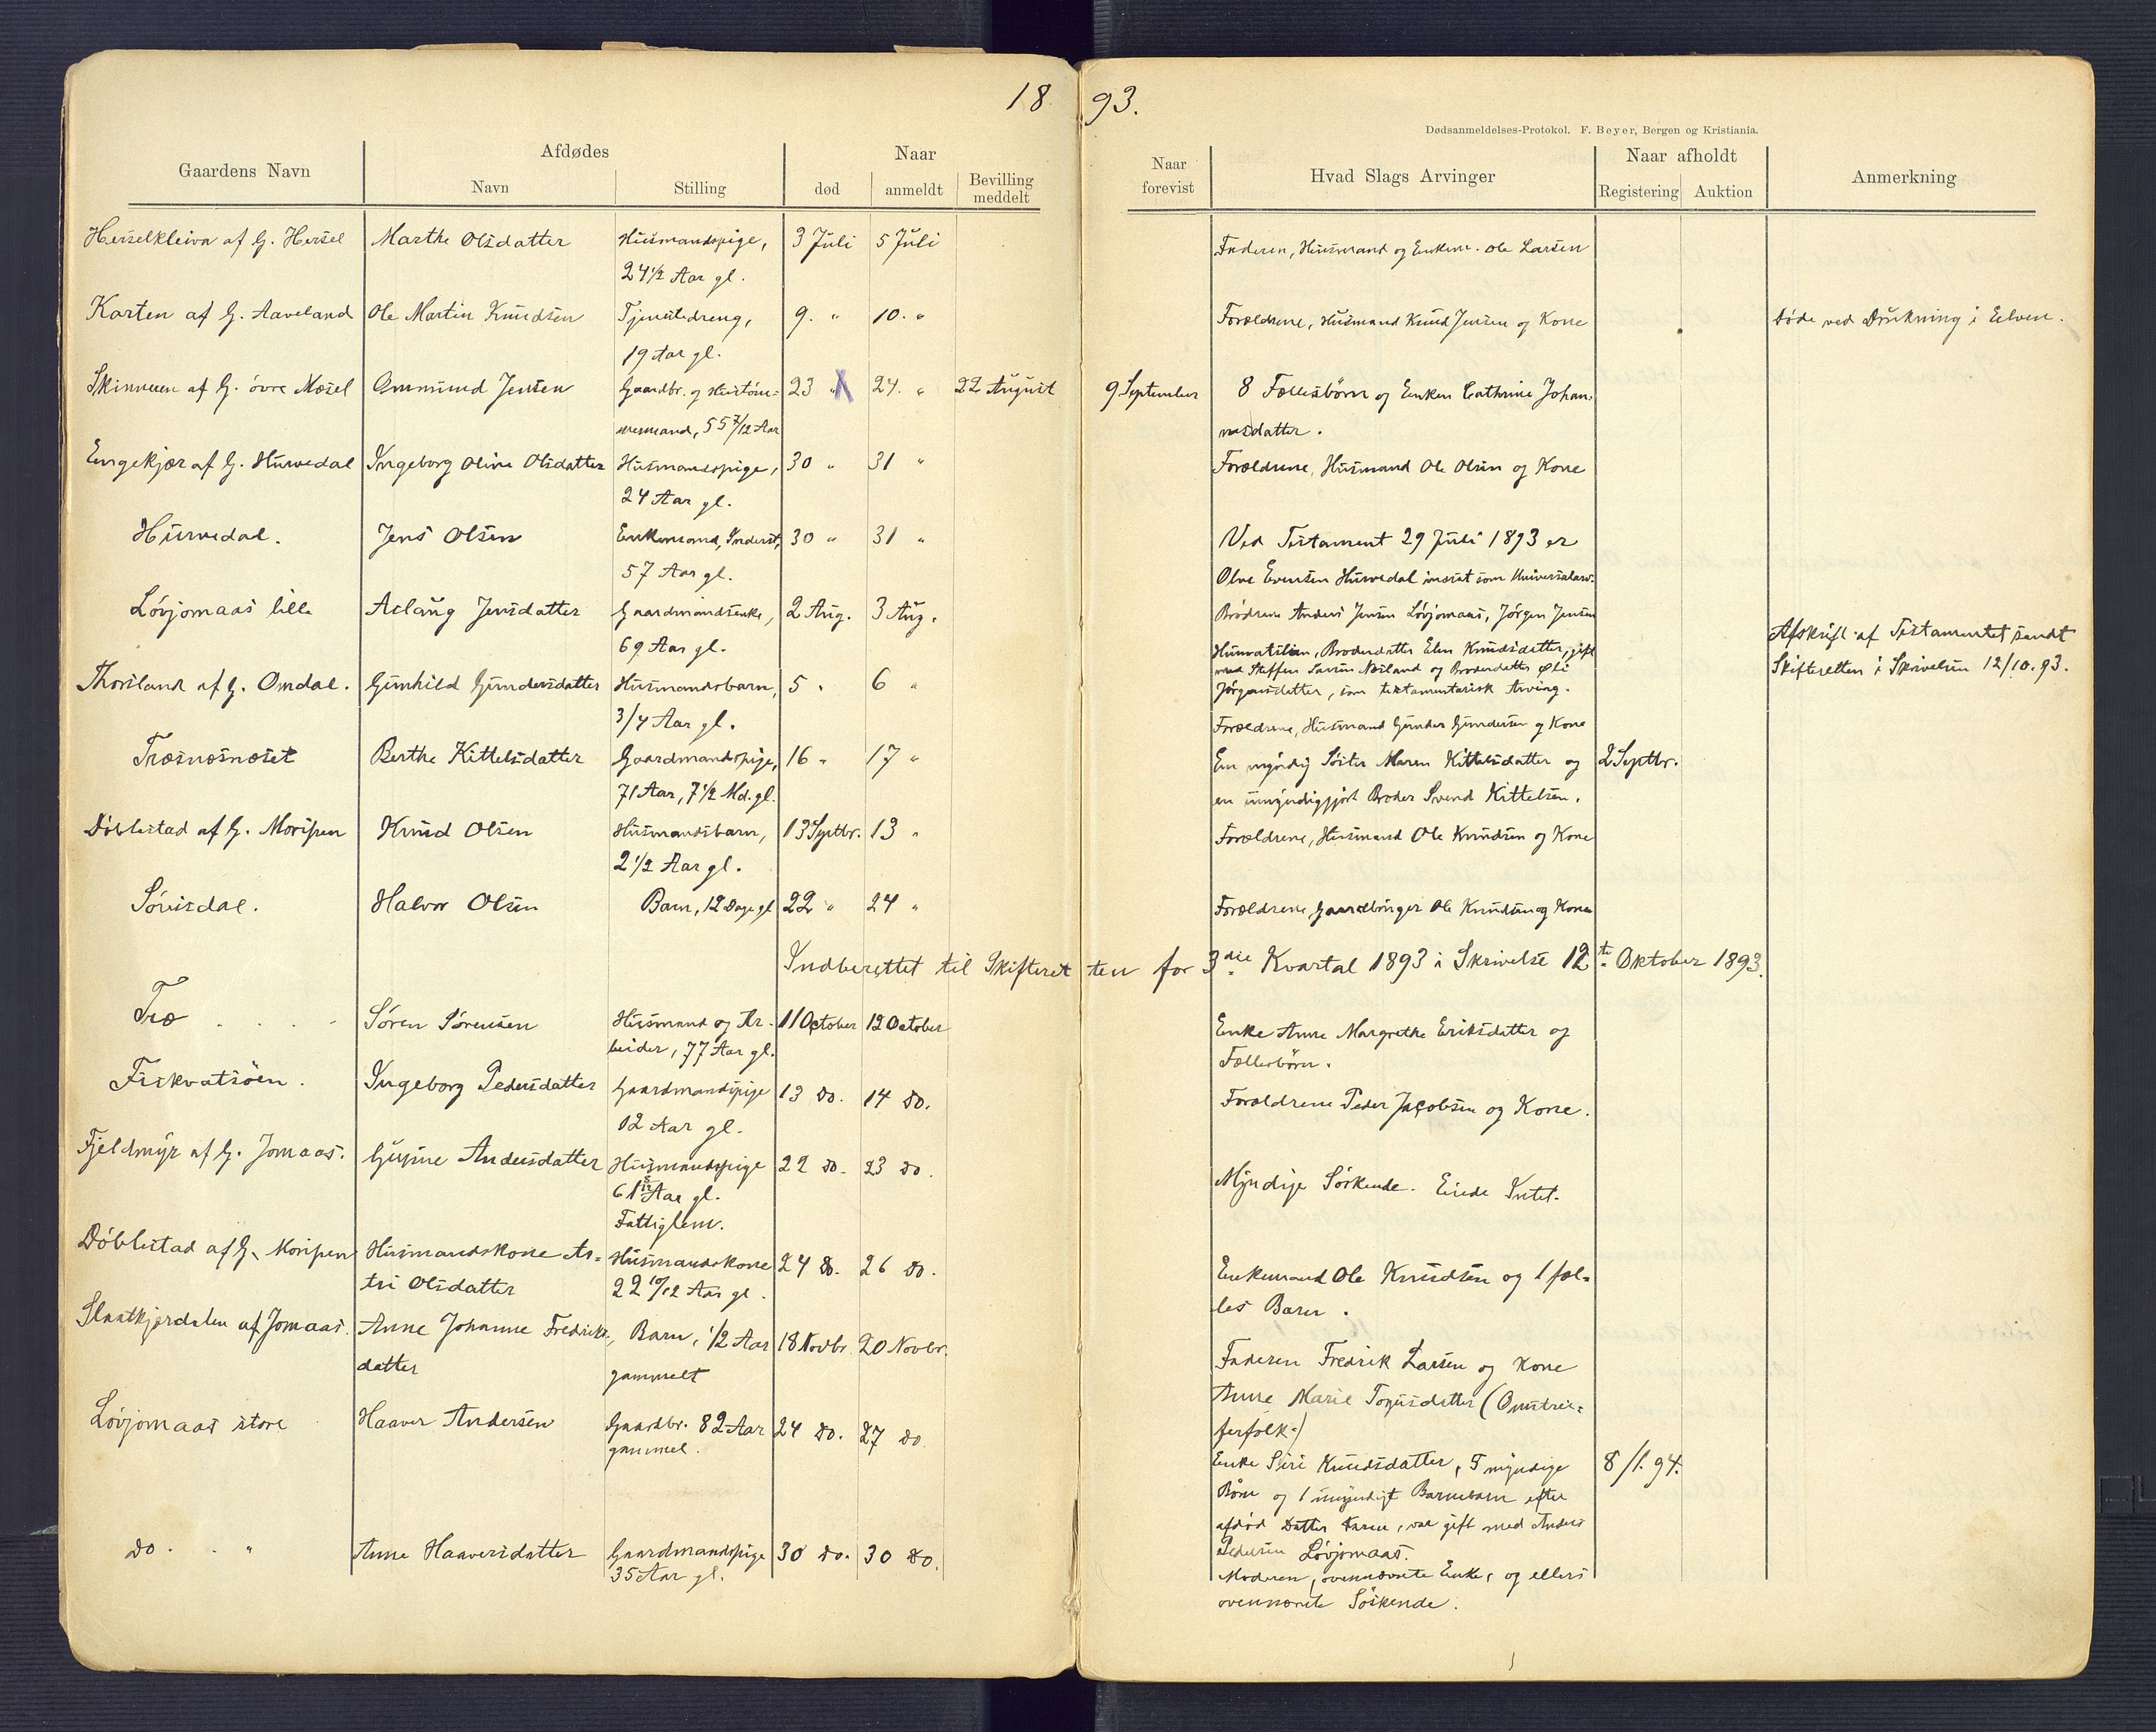 18 93.
Dødsanmeldelses-Protokol. F. Beyer, Bergen og Kristiania.
Gaardens Navn
Afdødes
Navn
Stilling
Naar
død
anmeldt
Bevilling
meddelt
Naar
forevist
Hvad Slags Arvinger
Naar afholdt
Registering
Auktion
Anmerkning
Herselkleiva af G. Hersel Marthe Olsdatter Husmandspige, 3 Juli 5 Juli Faderen, Husmand og Enkem. Ole Larsen
24 1/2 Aar gl.
Karten af G. Aaveland Ole Martin Knudsen Tjenestedreng, 9. " 10. " Forældrene, Husmand Knud Jensen og Kone Døde ved Drukning i Elven.
19 Aar gl.
af G. övre Mæsel Ommund Jensen Gaardbr. og 23 " 24. " 22 August 9 September 8 Fællesbörn og Enken Cathrine Johan-
55 7/12 Aar nesdatter.
Engekjær af G. Hurvedal Ingeborg Oline Olsdatter Husmandspige, 30 " 31 " Forældrene, Husmand Ole Olsen og Kone
24 Aar gl.
Hurvedal. Jens Olsen Enkemand, Inderst, 30 " 31 " Ved Testament 29 Juli 1893 er
57 Aar gl. Olve Evensen Hurvedal indsat som Universalarv.
Lövjomaas lille Aslaug Jensdatter Gaardmandsenke, 2 Aug. 3 Aug. Brödrene Anders Jensen Lövjomaas, Jörgen Jensen
69 Aar gl. Broderdatter Elen Knudsdatter, gift
med Steffen og Broderdatter
Jörgensdatter, som testamentarisk Arving.
Afskrift af Testamentet sendt
Skifteretten i Skrivelsen 12/10.93.
Thorsland af G. Omdal. Gunhild Gundersdatter Husmandsbarn, 5 " 6 "
3/4 Aar gl. Forældrene, Husmand Gunder Gundersen og Kone
Træsnæsnæset Berthe Kittelsdatter Gaardmandspige, 16 " 17 " En myndig Söster Maren Kittelsdatter og 2 Septbr.
71 Aar, 7 1/2 Md. gl. en umyndiggjort Broder Svend Kittelsen.
Döblestad af G. Moripen Knud Olsen Husmandsbarn, 13 Septbr. 13 " Forældrene, Husmand Ole Knudsen og Kone
2 1/2 Aar gl.
Sörisdal. Halvor Olsen Barn, 12 Dage gl 22 " 24 " Forældrene, Gaardbruger Ole Knudsen og Kone
Indberettet til Skifteretten for 3die Kvartal 1893 i Skrivelse 12te Oktober 1893.
Træ Søren Sørensen Husmand og Ar- 11 October 12 October Enke Anne Margrethe Eriksdatter og
beider, 77 Aar gl. Fællesbörn.
Fiskvatsöen. Ingeborg Pedersdatter Gaardmandspige 13 Do. 14 Do. Forældrene Peder Jacobsen og Kone.
12 Aar gl.
Fjeldmyr af G. Jomaas. Gurine Andersdatter Husmandspige 22 Do. 23 Do. Myndige Söskende. Eiede Intet.
61 Aar gl.
Fattiglem.
Döblestad af G. Moripen Husmandskone As- Husmandskone 24 Do. 26 Do. Enkemand Ole Knudsen og 1 fæl-
tri Olsdatter 22 10/12 Aar gl. les Barn.
af Jomaas. Anne Johanne Fredriks- Barn, 1/2 Aar 18 Novbr. 20 Novbr. Faderen Fredrik Larsen og Kone
datter gammelt Anne Marie (Omstrei-
ferfolk.)
Lövjomaas store Haaver Andersen Gaardbr. 82 Aar 24 Do. 27 Do. Enke Siri Knudsdatter, 5 myndige 8/1.94.
gammel. Börn og 1 umyndigt Barnebarn efter
afdød Datter Karen, var gift med Anders
Pedersen Lövjomaas.
Do. " Anne Haaversdatter Gaardmandspige 30 Do. 30 Do. Moderen, ovennævnte Enke, og ellers
35 Aar gl. ovennævnte Söskende.